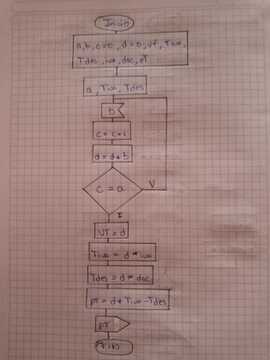 Inicio
a, b, c=0, d=0, vt, Tiva,
Tdes, iva, dsc, pt
a, Tiva, Tdes
b
c = c+1
d = d+b
c = a
V
VT = d
Tiva = d * iva
Tdes = d * dsc
pt = d + Tiva - Tdes
pt
Fin